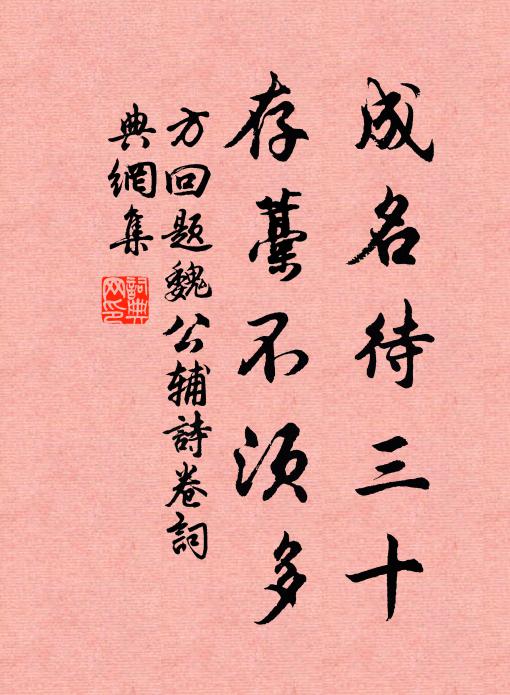 成名待三十
存藳不須多
方回題魏公辅詩卷詞
典網集
詞典
网印